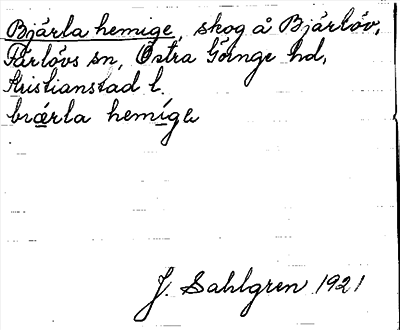 Bjärla hemige, skog å Bjärlöv,
Färlövs sn, Östra Göinge hd,
Kristianstad l.
biærla hemíge
J. Sahlgren 1921